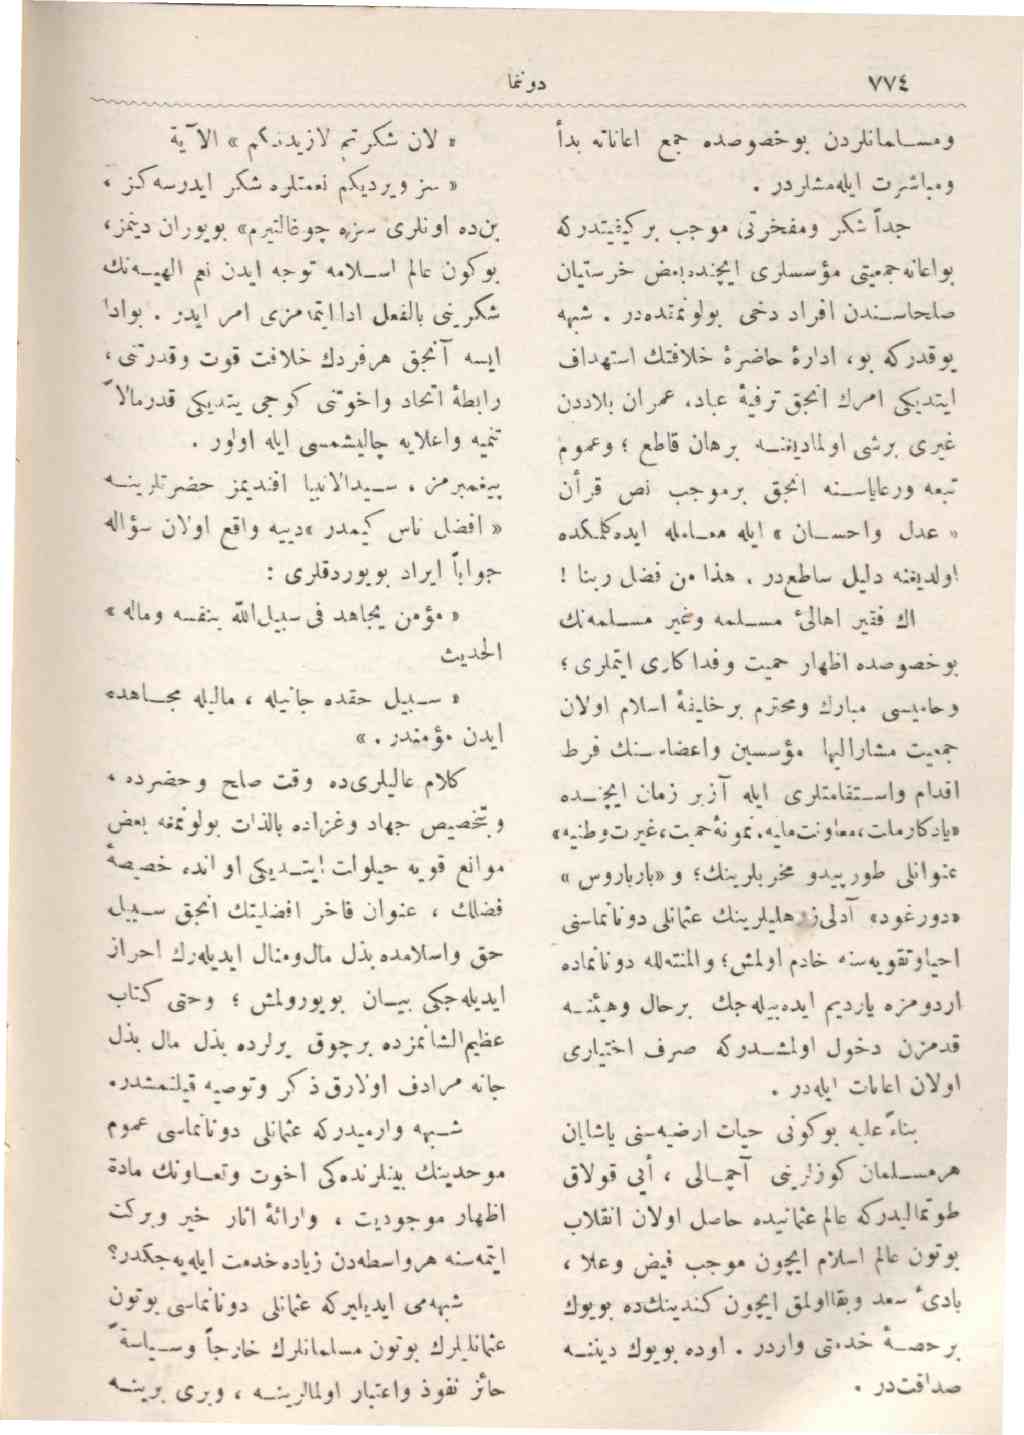 ٧٧٤
دونما
ومسلمانلردن بوخصوصده جمع اعاناته بدأ
ومباشرت ایله‌مشلردر .
جداً شكر ومفخرتی موجب بر كیفیتدركه
بواعانه‌جمعیتی مؤسسلری ایچنده‌بعض خرستیان
صلحاسندن افراد دخی بولونمقده‌در . شبهه
یوقدركه بو، ادارهٔ حاضرهٔ خلافتك استهداف
ایتدیكی امرك انجق ترفیهٔ عباد، عمران بلاددن
غیری برشی اولمادیغنه برهان قاطع ؛ وعموم
تبعه ورعایاسنه انجق برموجب نص قرأن
« عدل واحسان » ایله معامله ایده‌كلمكده
اولدیغنه دلیل ساطع‌در . هذا من فضل ربنا !
اك فقیر اهالیٔ مسلمه وغیر مسلمه‌نك
بوخصوصده اظهار حمیت وفداكاری ایتملری ؛
وحامیسی مبارك ومحترم برخلیفهٔ اسلام اولان
جمعیت مشارالیها مؤسسین واعضاسنك فرط
اقدام واستقامتلری ایله آزبر زمان ایچنده
«یادكارملت،معاونت‌ملیه،نمونهٔ‌حمیت،غیرت‌وطنیه»
عنوانلی طورپیدو مخربلرینك؛ و «بارباروس »
«دورغود» آدلی‌زرهلیلرینك عثمانلی دونانماسنی
احیاوتقویه‌سنه خادم اولمش؛ والمنته‌لله دونانماده
اردومزه یاردیم ایده‌بیله‌جك برحال وهیئتنه
قدمزن دخول اولمشدركه صرف اختیاری
اولان اعانات ایله‌در .
بناءً علیه بوكونی حیات ارضیه‌سنی یاشایان
هرمسلمان كوزلرینی آچمالی ، أیی قولاق
طوتمالیدركه عالم عثمانیده حاصل اولان انقلاب
بوتون عالم اسلام ایچون موجب فیض وعلا ،
بادیٔ سعد وبقااولمق ایچون كندینك‌ده بویوك
برحصهٔ خدمتی واردر . اوده بویوك دیننه
صداقت‌در .
« لان شكرتم لازیدنكم » الآیة
« سز ویردیكم نعمتلره شكر ایدرسه‌كز ،
بن‌ده اونلری سزه چوغالتیرم» بویوران دینمز،
بوكون عالم اسلامه توجه ایدن نعم الهیه‌نك
شكرینی بالفعل اداایتمامزی امر ایدر . بوادا
ایسه آنجق هرفردك خلافت قوت وقدرتنی،
رابطهٔ اتحاد واخوتنی كوجی یتدیكی قدرمالاً
تنمیه واعلایه چالیشمسی ایله اولور .
پیغمبرمز ، سیدالانبیا افندیمز حضرتلرینه
« افضل ناس كیمدر »دییه واقع اولان سؤاله
جواباً ایراد بویوردقلری :
« مؤمن یجاهد فی سبیل‌الله بنفسه وماله »
الحدیث
« سبیل حقده جانیله ، مالیله مجاهده
ایدن مؤمندر . »
كلام عالیلری‌ده وقت صلح وحضرده ،
وبتخصیص جهاد وغزاده بالذات بولونمغه بعض
موانع قویه حیلولت ایتدیكی اوانده خصیصهٔ
فضلك ، عنوان فاخر افضلیتك انجق سبیل
حق واسلامده بذل مال‌ومنال ایدیله‌رك احراز
ایدیله‌جكی بیان بویورولمش ؛ وحتی كتاب
عظیم‌الشانمزده برچوق یرلرده بذل مال بذل
جانه مرادف اولارق ذكر وتوصیه قیلنمشدر.
شبهه وارمیدركه عثمانلی دونانماسی عموم
موحدینك بینلرنده‌كی اخوت وتعاونك مادة
اظهار موجودیت ، وارائهٔ اثار خیر وبركت
ایتمه‌سنه هرواسطه‌دن زیاده‌خدمت ایله‌یه‌جكدر؟
شبهه‌می ایدیلیركه عثمانلی دونانماسی بوتون
عثمانلیلرك بوتون مسلمانلرك خارجاً وسیاسةً
حائز نفوذ واعتبار اولمالرینه ، وبری برینه